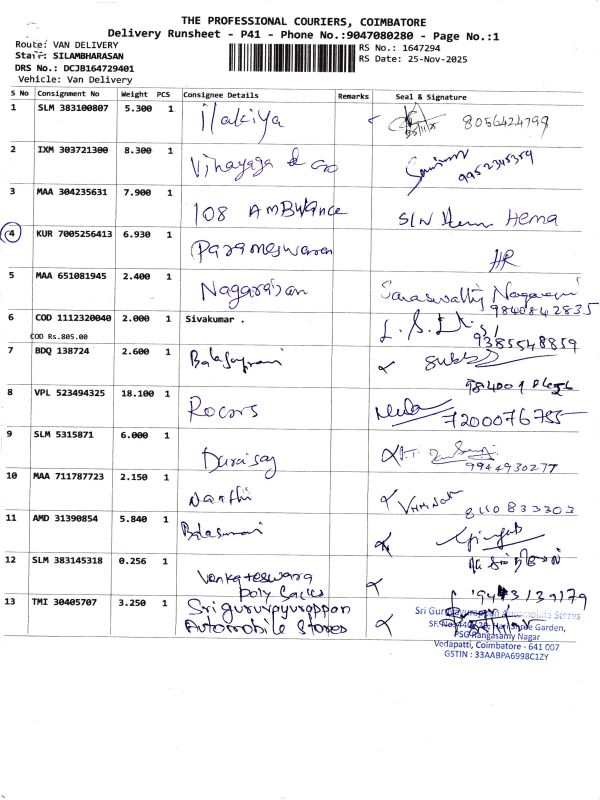 THE PROFESSIONAL COURIERS, COIMBATORE
Delivery Runsheet - P41 - Phone No.:9047080280 - Page No.:1
Route: VAN DELIVERY
RS No.: 1647294
Staff: SILAMBHARASAN
RS Date: 25-Nov-2025
DRS No.: DCJB164729401
Vehicle: Van Delivery
S No Consignment No Weight PCS Consignee Details Remarks Seal & Signature
1 SLM 383100807 5.300 1 ilakiya 8056424799
2 IXM 303721300 8.300 1 Vinayaga & co 9952345359
3 MAA 304235631 7.900 1 108 AMBULANCE S/N Hema
4 KUR 7005256413 6.930 1 Parameswaran HR
5 MAA 651081945 2.400 1 Nagarajan Saraswathy Nagarajan
9840842835
6 COD 1112320040 2.000 1 Sivakumar .
COD Rs.805.00
9385548859
7 BDQ 138724 2.600 1
8 VPL 523494325 18.100 1 Rocars 7200076755
9 SLM 5315871 6.000 1 Duraisay
9944930277
10 MAA 711787723 2.150 1 Naathi 8110833303
11 AMD 31390854 5.840 1
12 SLM 383145318 0.256 1 Venkateswara
Poly Sacks
9443139179
13 TMI 30405707 3.250 1 Sri guruvayurappan
Automobile Stores
Sri Guruvayurappan Automobile Stores
Hari Shree Garden,
PSG Rangasamy Nagar
Vedapatti, Coimbatore - 641 007
GSTIN : 33AABPA6998C1ZY